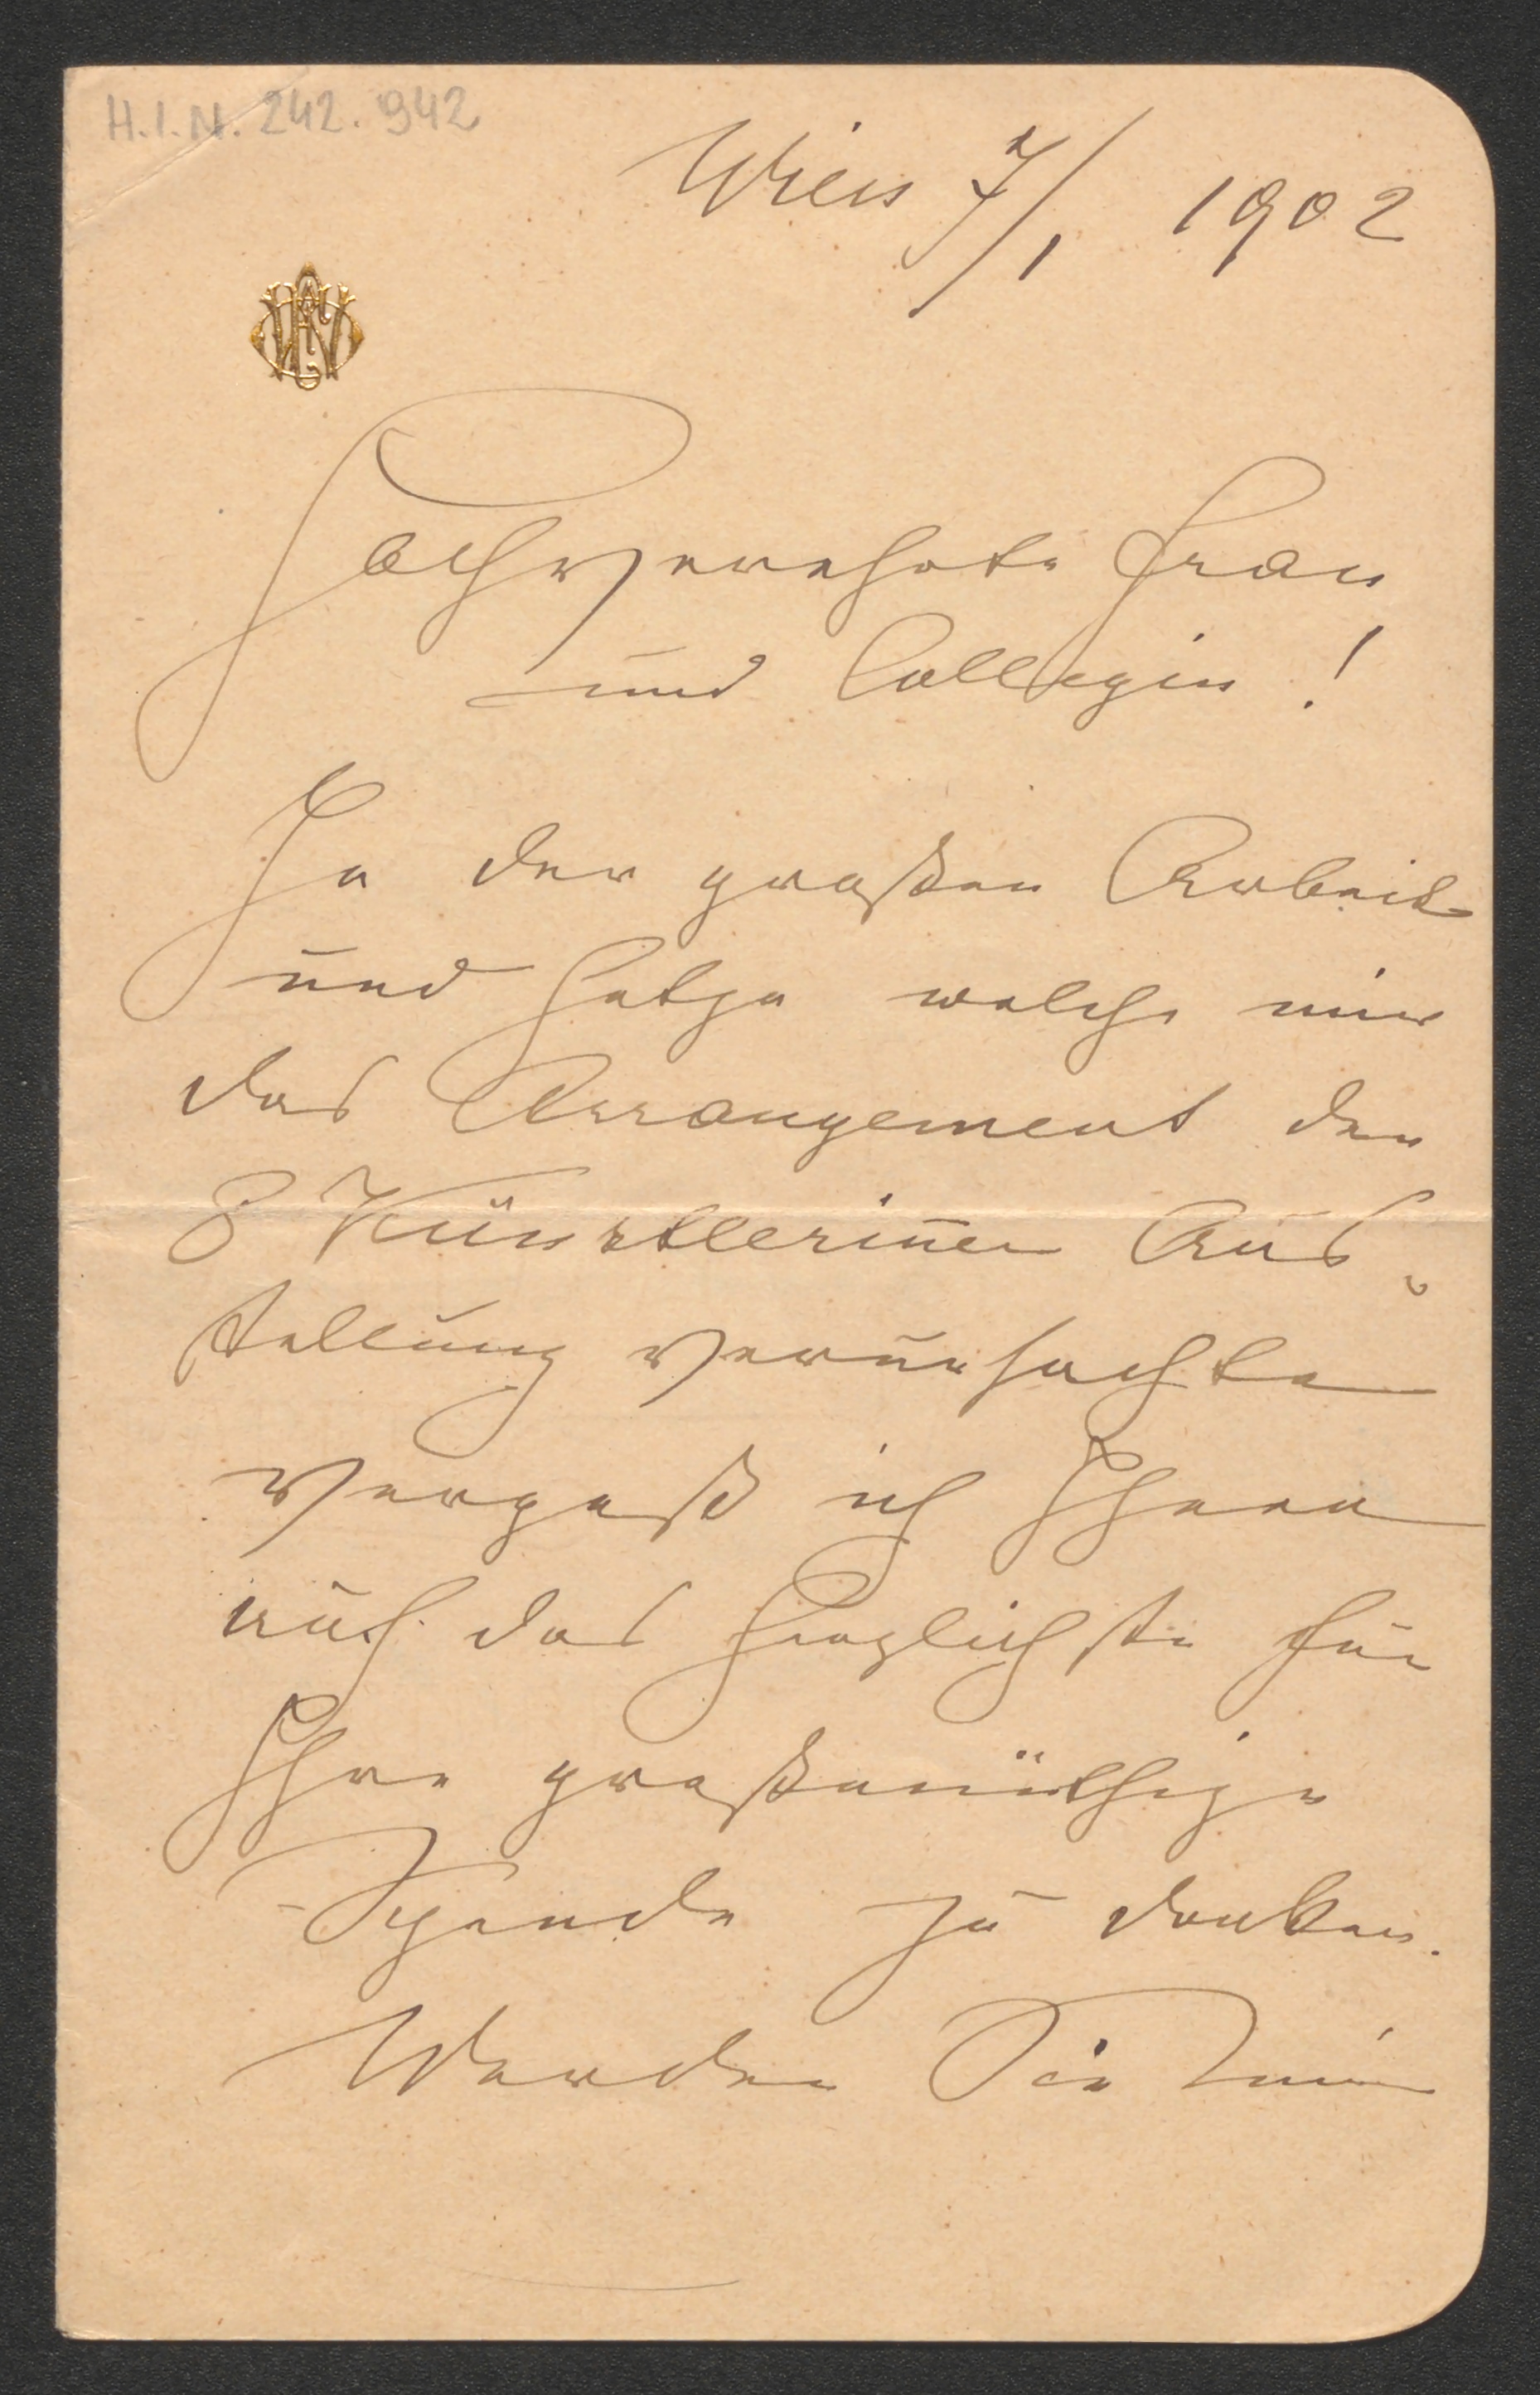 H.I.N. 242.942
Wien 7/1 1902
Hochverehrte Frau
und Collegin!
In der großen Arbeit
und Hetze welche mir
das Arrangement der
8 Künstlerinen Aus-
stellung verursachte
vergaß ich Ihnen
auf das herzlichste für
Ihre großmüthige
Spende zu danken.
Werden Sie mir